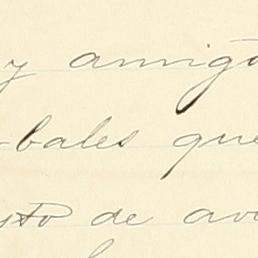 y amigo
bales que
sto de av